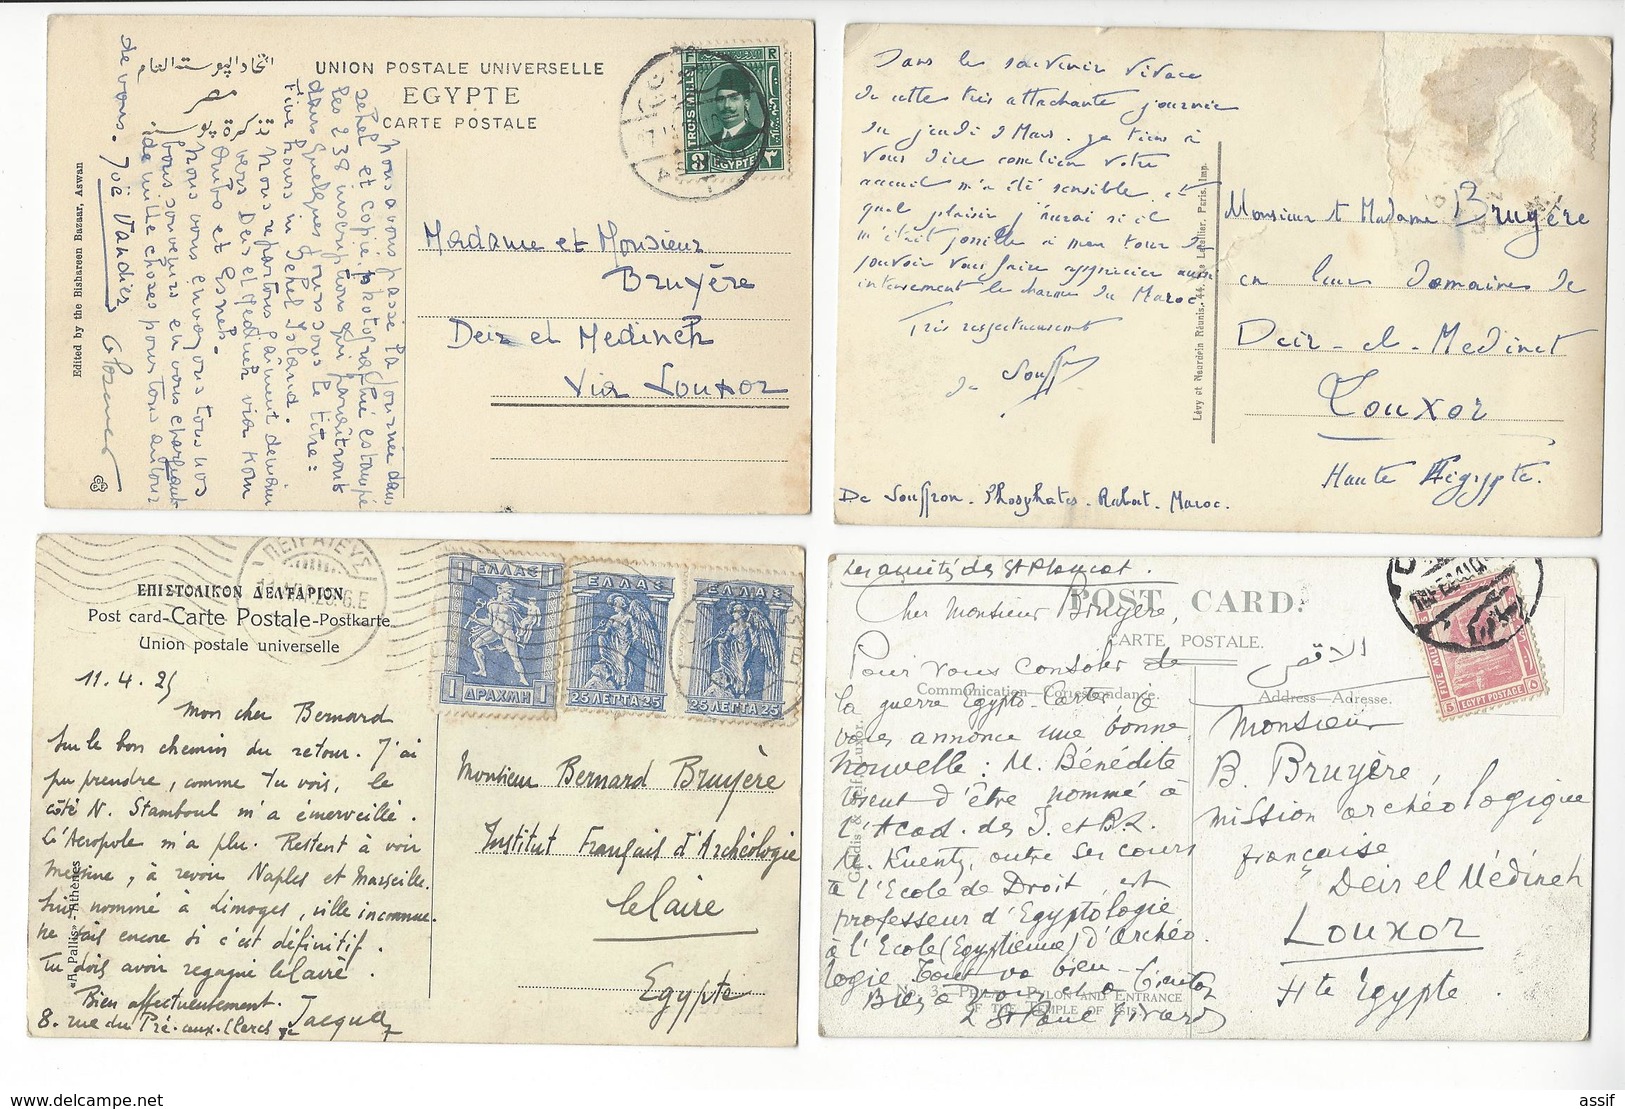 اتحاد البوستة العام
UNION POSTALE UNIVERSELLE
EGYPTE
CARTE POSTALE
مصر
تذكرة بوستة
TROIS MILLS
3
EGYPTE
Edited by the Bishareen Bazaar, Aswan
Nous avons passé la journée dans
Sehel et copié, photographié, estampé
les 238 inscriptions qui paraîtront
dans quelques jours sous le titre :
Five hours in Sehel Island.
Nous repartons gaiment demain
vers Deir el Medineh via Kom
Ombo et Esneh.
Nous vous envoyons tous nos
bons souvenirs en vous chargeant
de mille choses pour tous autour
de vous. Joë Vandier
Madame et Monsieur
Bruyère
Deir el Medineh
Via Louxor
Dans le souvenir vivace
de cette très attachante journée
du jeudi 2 Mars. je tiens à
vous dire combien votre
accueil m'a été sensible et
quel plaisir j'aurai si il
m'était possible à mon tour de
pouvoir vous faire apprécier aussi
intensement le charme du Maroc.
Très respectueusement
de Souffron
De Souffron. Phosphates. Rabat. Maroc.
Lévy et Neurdein Réunis, 44, Letellier, Paris, Imp.
Monsieur et Madame Bruyère
en leur domaine de
Deir-el-Medinet
Louxor
Haute Egypte.
ΠΕΙΡΑΙΕΥΣ
ΕΠΙΣΤΟΛΙΚΟΝ ΔΕΛΤΑΡΙΟΝ
Post card-Carte Postale-Postkarte
Union postale universelle
ΕΛΛΑΣ
1 ΔΡΑΧΜΗ 1
ΕΛΛΑΣ
25 ΛΕΠΤΑ 25
ΕΛΛΑΣ
25 ΛΕΠΤΑ 25
«A. Pallis» Athènes
11.4.25
Mon cher Bernard
Sur le bon chemin du retour. J'ai
pu prendre, comme tu vois, le
côté N. Stamboul m'a émerveillé.
L'Acropole m'a plu. Restent à voir
Messine, à revoir Naples et Marseille.
Suis nommé à Limoges, ville inconnue.
ne sais encore si c'est définitif.
Tu dois avoir regagné le Caire.
Bien affectueusement.
8. rue du Pré-aux-Clercs Jacques
Monsieur Bernard Bruyère
Institut Français d'Archéologie
le Caire
Egypte
Les amitiés de St Plancat.
POST CARD.
CARTE POSTALE.
Communication—Correspondance.
Address—Adresse.
الاقصر
FIVE
5 EGYPT POSTAGE
Cher Monsieur Bruyère,
Pour vous consoler de
la guerre Egypto-Carter, je
vous annonce une bonne
nouvelle : M. Bénédite
vient d'être nommé à
l'Acad. des I. et B.L.
M. Kuentz, outre ses cours
à l'Ecole de Droit, est
professeur d'Egyptologie
à l'Ecole (Egyptienne) d'Archéo-
logie. Tout va bien
PYLON AND ENTRANCE
OF THE TEMPLE OF ISIS
Monsieur
B. Bruyère,
mission archéologique
française
Deir el Médineh
Louxor
Hte Egypte.
assif